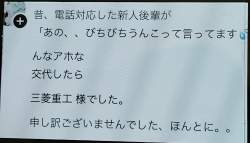 昔、電話対応した新人後輩が
「あの、、びちびちうんこって言ってます
んなアホな
交代したら
三菱重工 様でした。
申し訳ございませんでした、ほんとに。。